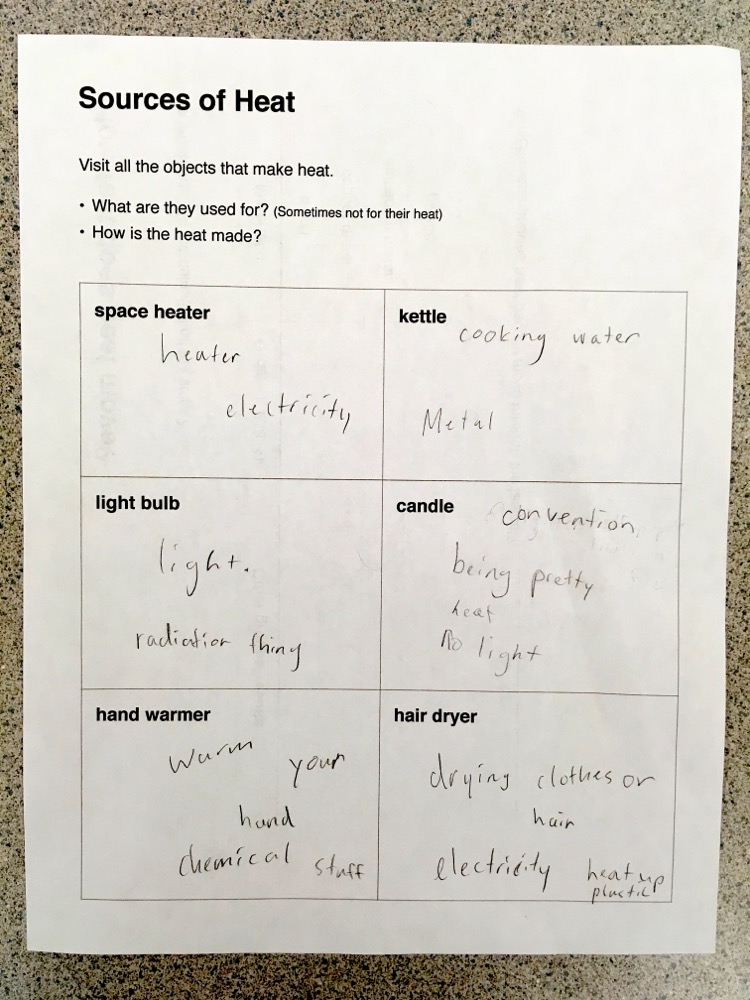 Sources of Heat
Visit all the objects that make heat.
• What are they used for? (Sometimes not for their heat)
• How is the heat made?
space heater
heater
electricity
kettle
cooking water
Metal
light bulb
light.
radiation thing
candle
convention
being pretty
heat
No light
hand warmer
warm your
hand
chemical stuff
hair dryer
drying clothes or
hair
electricity heat up
plastic